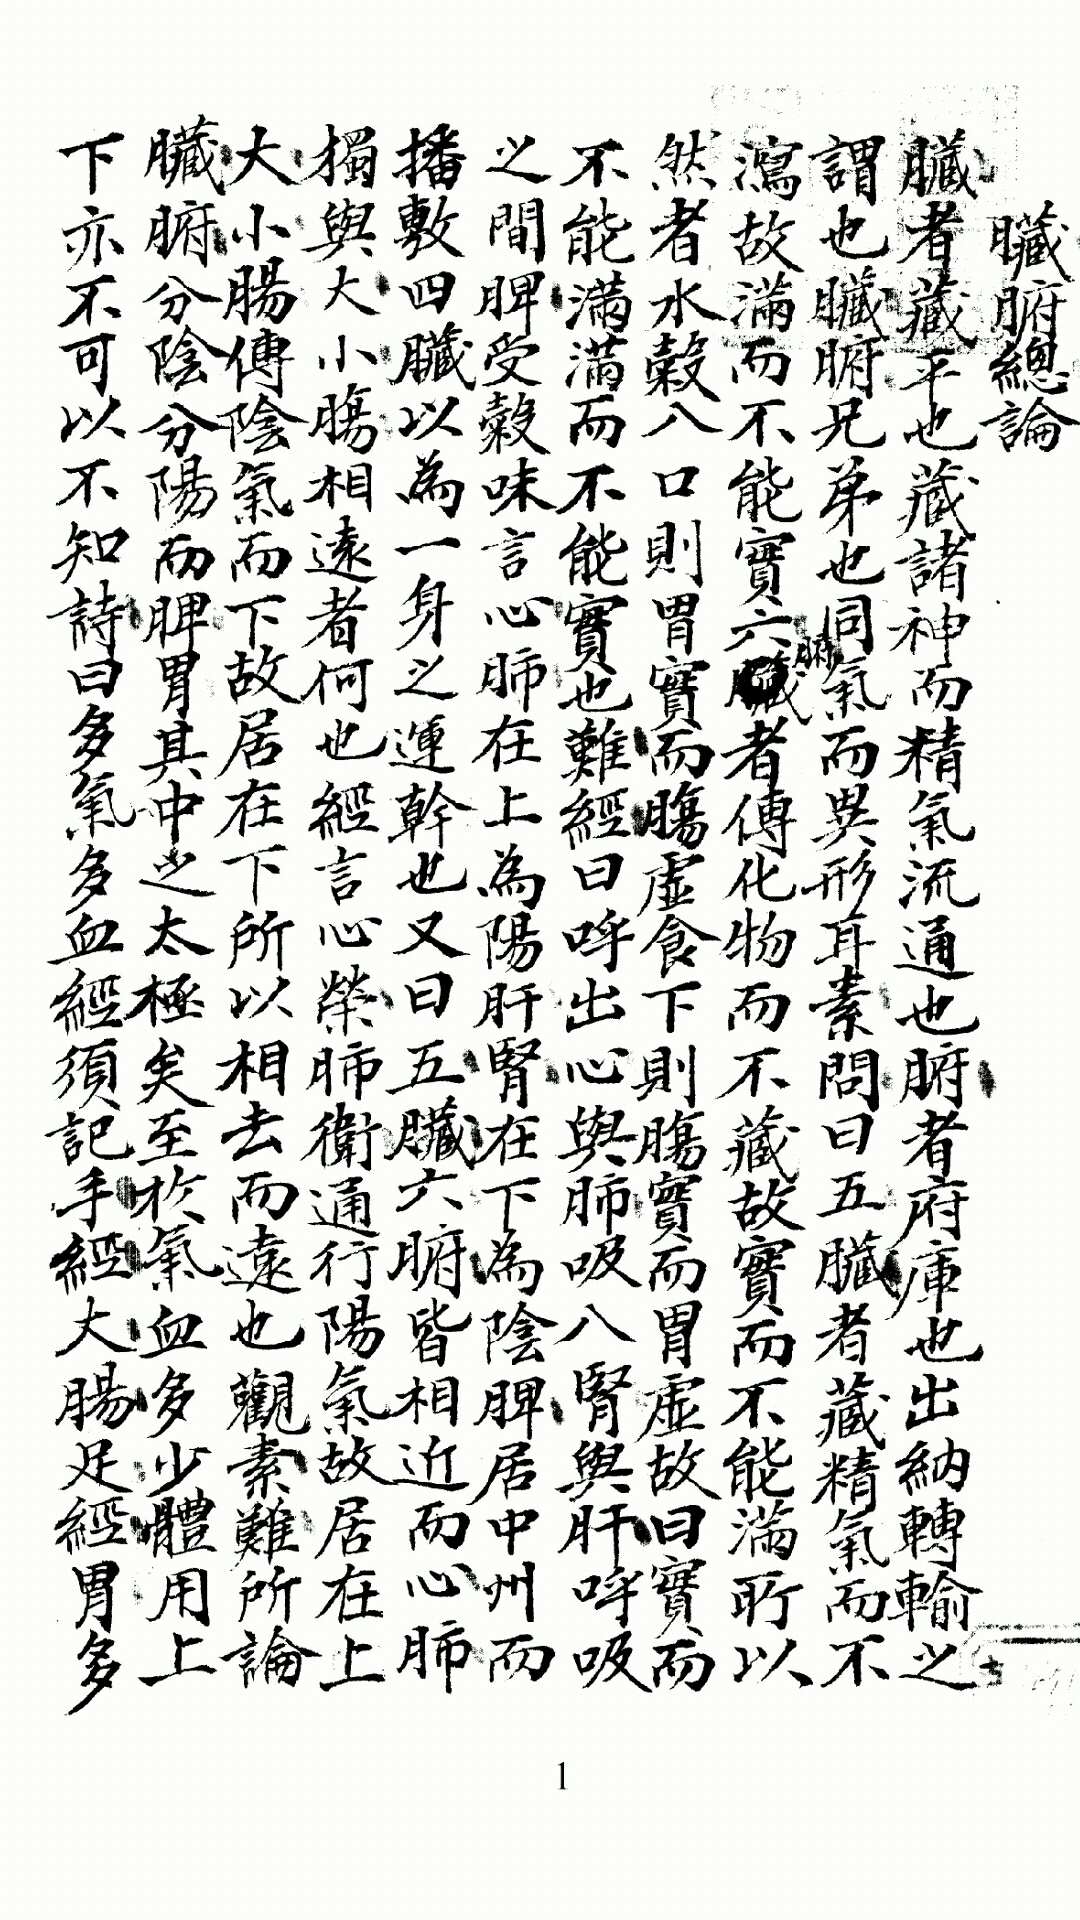 臓腑總論
臓者藏乎也藏諸神而精氣流通也腑者府庫也出納轉輸之
謂也臓腑兄弟也同氣而異形耳素問曰五臓者藏精氣而不
瀉故滿而不能實六腑者傳化物而不藏故實而不能滿所以
然者水穀八口則胃實而腸虛食下則腸實而胃虛故曰實而
不能滿滿而不能實也難經曰呼出心與肺吸八腎與肝呼吸
之間脾受穀味言心肺在上為陽肝腎在下為陰脾居中州而
播敷四臓以為一身之運幹也又曰五臓六腑皆相近而心肺
獨與大小腸相遠者何也經言心榮肺衛通行陽氣故居在上
大小腸傳陰氣而下故居在下所以相去而遠也觀素難所論
臓腑分陰分陽而脾胃其中之太極矣至於氣血多少體用上
下亦不可以不知詩曰多氣多血經須記手經大腸足經胃多
1